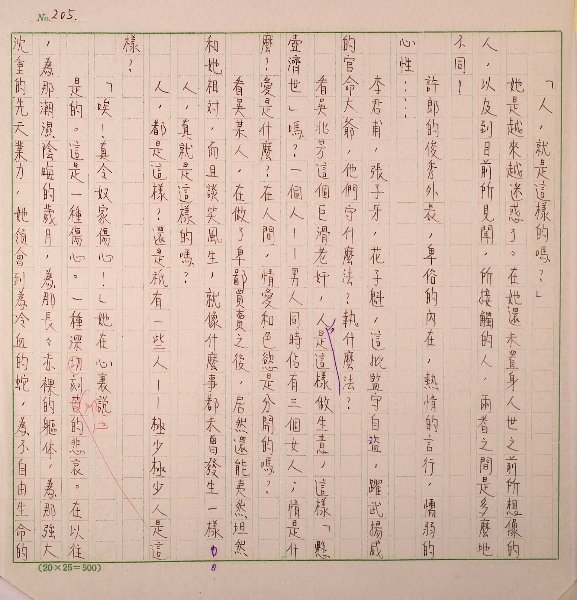 No. 205.
「人，就是這樣的嗎？」
她是越來越迷惑了。在她還未置身人世之前所想像的
人，以及到目前所見聞，所接觸的人，兩者之間是多麼地
不同！
許郎的俊秀外表，卑俗的內在，熱情的言行，懦弱的
心性……
李君甫，張子牙，花子魁，這批監守自盜，躍武揚威
的官命大爺，他們守什麼法？執什麼法？
看吳北芳這個巨滑老奸，人是這樣做生意，這樣「懸
壺濟世」嗎？一個人！——男人同時佔有三個女人；情是什
麼？愛是什麼？在人間，情愛和色慾是分開的嗎？
看吳某人，在做了卑鄙買賣之後，居然還能夷然坦然
和她相對，而且談笑風生，就像什麼事都未曾發生一樣。
人，真就是這樣的嗎？
人，都是這樣？還是祇有一些人——極少極少人是這
樣？
「唉！真令奴家傷心！」她在心裏說：
是的。這是一種傷心。一種深切的悲哀。在以往
，為那潮濕陰暗的歲月，為那長長赤裸的軀体，為那強大
沈重的先天業力，她領會到為冷血的蛇，為不自由生命的
(20×25=500)